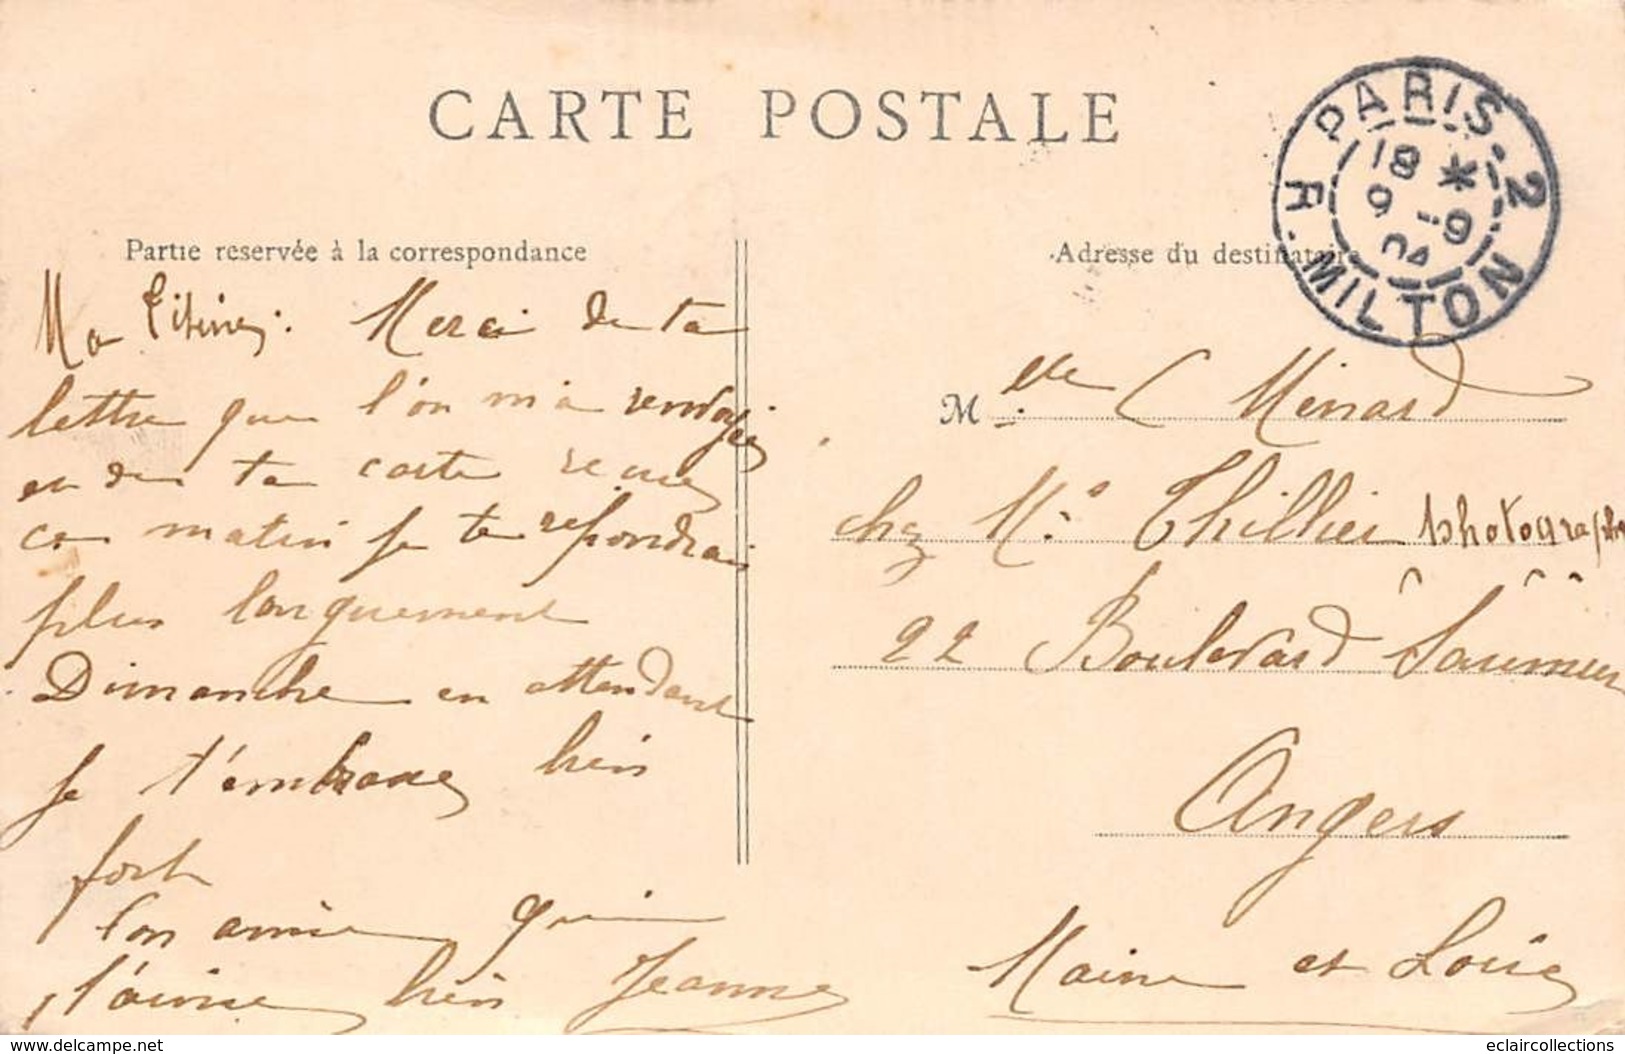 CARTE POSTALE
PARIS-2
18 *
9 -9
04
R. MILTON
Partie reservée à la correspondance
Ma Titine: Merci de ta
lettre que l'on m'a renvoyée
et de ta carte reçue
ce matin je te repondrai
plus longuement
Dimanche en attendant
je t'embrasse bien
fort
Ton amie qui
t'aime bien Jeanne
Adresse du destinataire
M elle C Ménard
chez Mr Thillier photographe
22 Boulevard Saumur
Angers
Maine et Loire
www.delcampe.net
eclaircollections